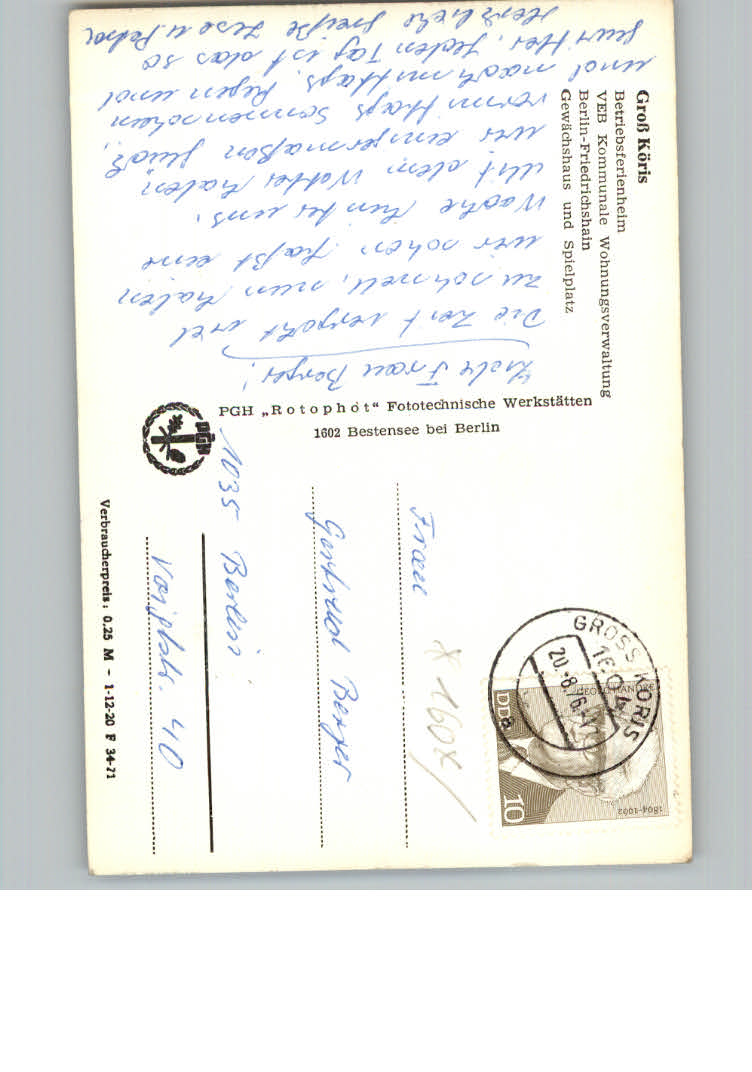 Groß Köris
Betriebsferienheim
VEB Kommunale Wohnungsverwaltung
Berlin-Friedrichshain
Gewächshaus und Spielplatz
Liebe Frau Berger!
Die Zeit vergeht viel
zu schnell, nun haben
wir schon fast eine
Woche hinter uns.
Mit dem Wetter haben
wir einigermaßen Glück,
vormittags Sonnenschein
und nachmittags Regen und
Jeden Tag ist das so
Herzliche Grüße
PGH „Rotophot“ Fototechnische Werkstätten
1602 Bestensee bei Berlin
PGH
Frau
Gertrud Berger
1035 Berlin
Voigtstr. 40
Verbraucherpreis: 0,25 M – 1-12-20 F 34-71
GROSS KÖRIS
1604
20.-8.76
a
DDR
10